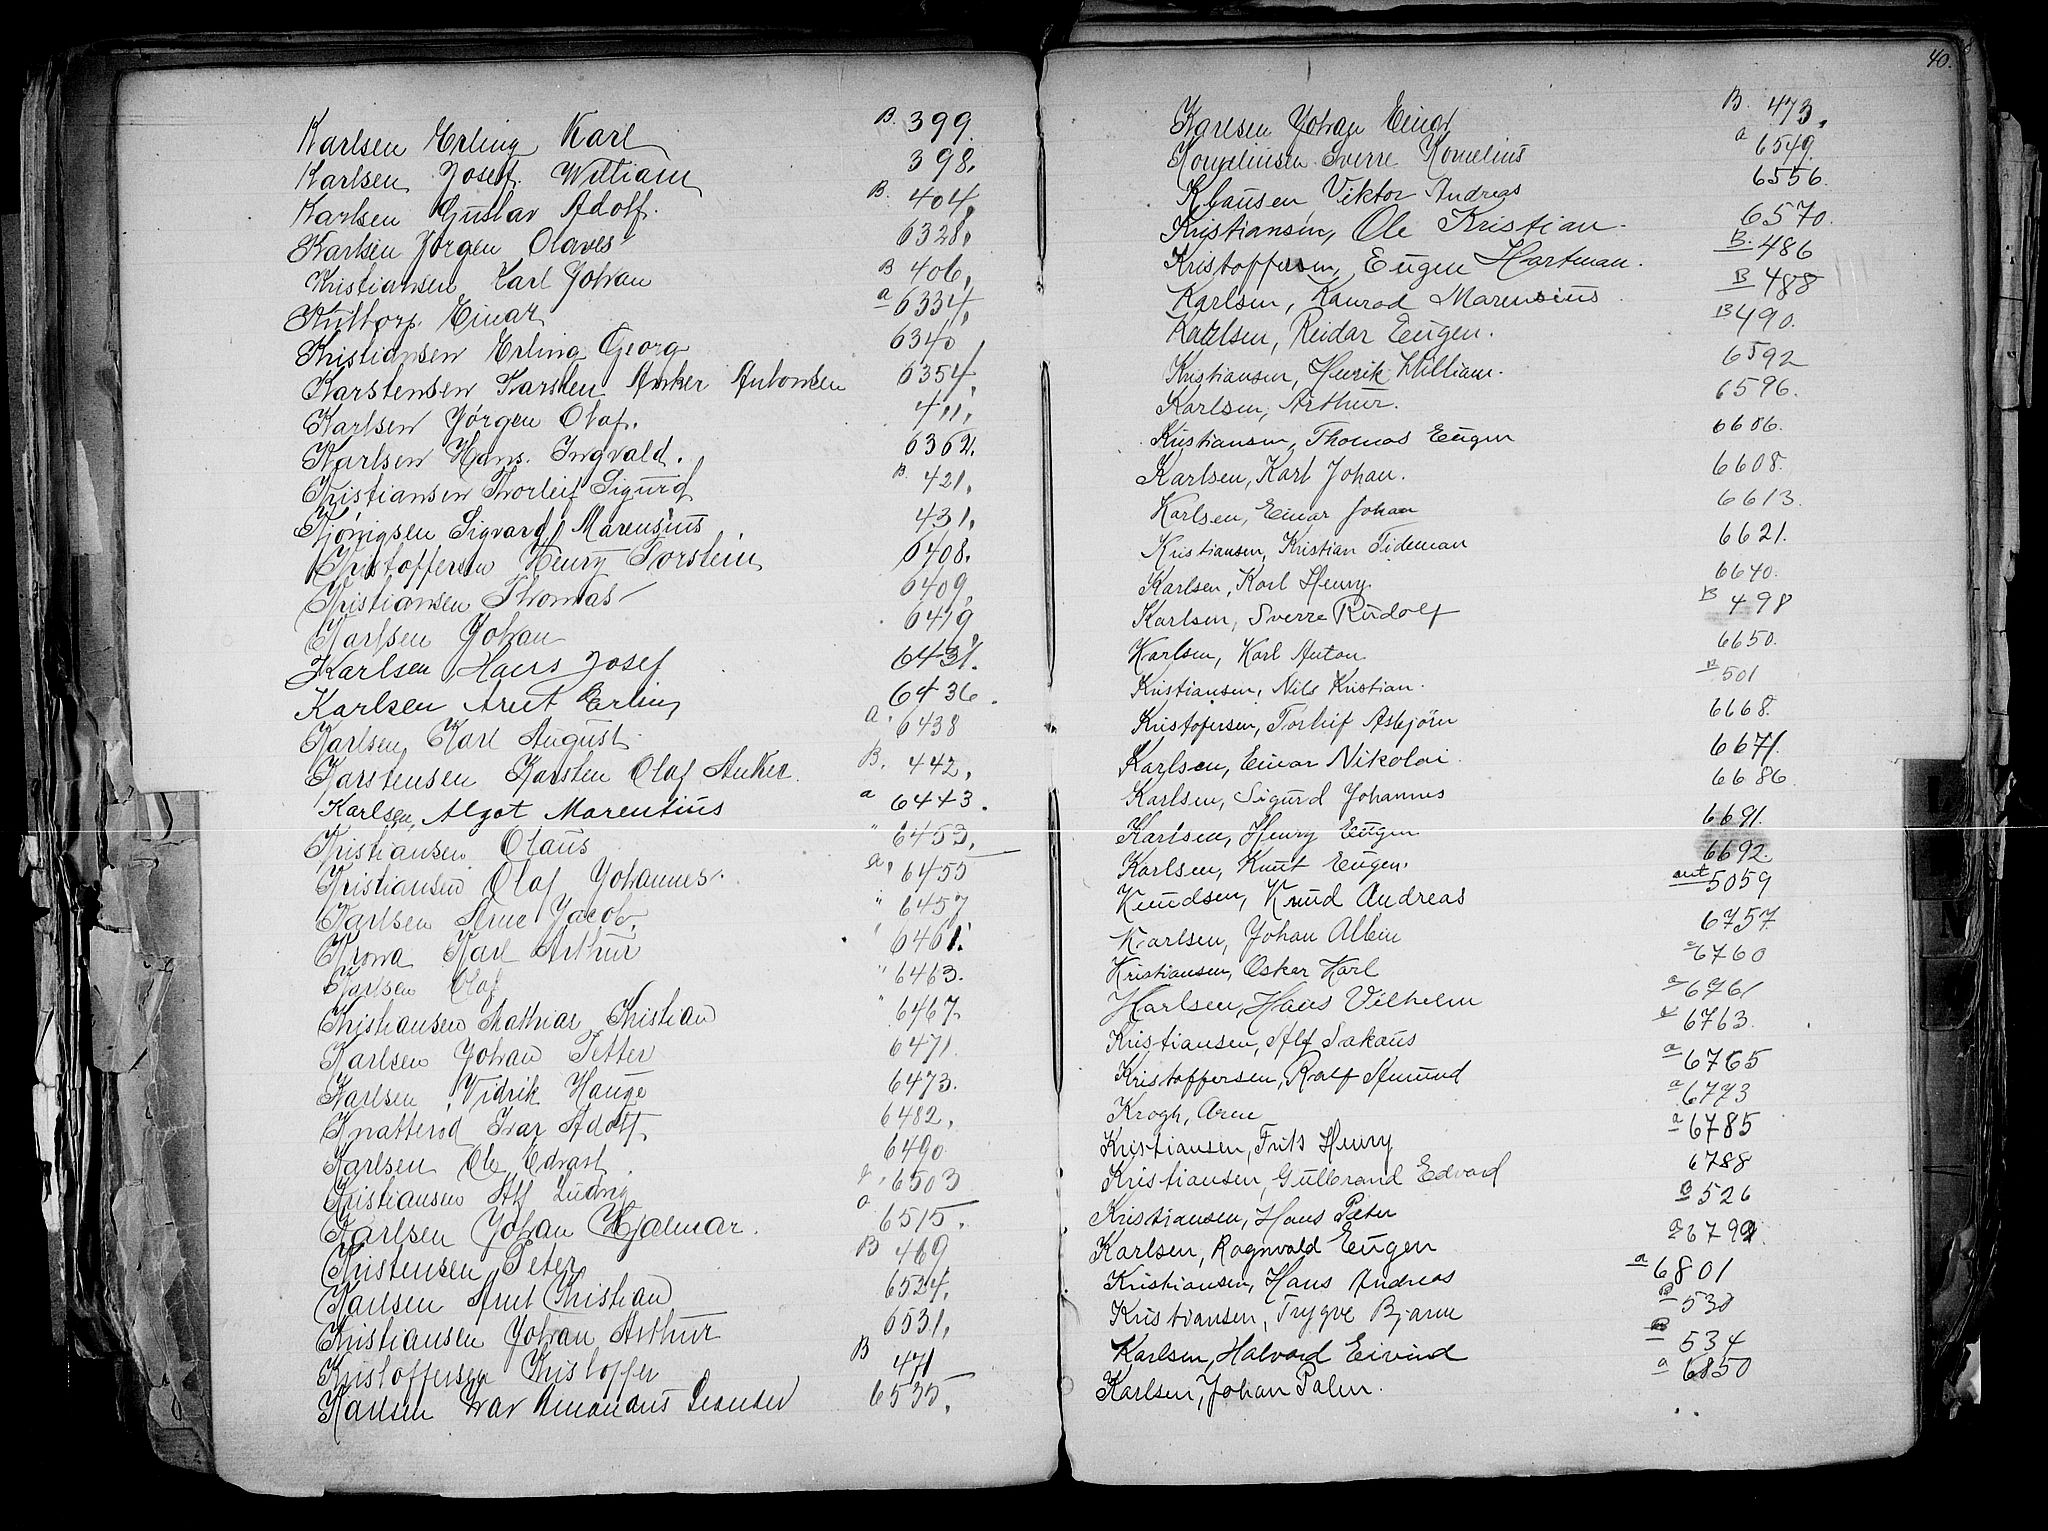 Karlsen Erling Karl B. 399.
Karlsen Josef William 398.
Karlsen Gustav Adolf. B. 404,
Karlsen Jørgen Olaves 6328,
Kristiansen Karl Johan B 406,
Kultorp Einar a 6334,
Kristiansen Erling Georg 6340
Karstensen Karsten Anker Antonsen 6354,
Karlsen Jørgen Olaf. 411,
Karlsen Hans Ingvald. 6362.
Kristiansen Thorleif Sigurd B. 421,
Kjønigsen Sigvard Marensius 431,
Kristoffersen Henry Torstein 6408.
Kristiansen Thomas 6409,
Karlsen Johan 6419
Karlsen Hans Josef 6431.
Karlsen Arnt Erling 6436.
Karlsen Karl August a. 6438
Karstensen Karsten Olaf Anker. B. 442,
Karlsen, Algot Marentius a 6443.
Kristiansen Olaus " 6453,
Kristiansen Olaf Johannes. a, 6455
Karlsen Arne Jacob, " 6457
Krona Karl Arthur " 6461.
Karlsen Olaf " 6463.
Kristiansen Mathias Kristian " 6467.
Karlsen Johan Petter 6471.
Karlsen Vidrik Hauge 6473.
Knatterød Ivar Adolf 6482,
Karlsen Ole Edvart 6490
Kristiansen Alf Ludvig a 6503
Karlsen Johan Hjalmar. a 6515.
Kristensen Peter B 469
Karlsen Arnt Kristian 6524,
Kristiansen Johan Arthur 6531,
Kristoffersen Kristoffer B 471
Karlsen Ivar Amandus Leander 6535,
40.
Karlsen Johan Einar B. 473,
Kornelinsen Sverre Kornelius a 6549.
Klausen Viktor Andreas 6556.
Kristiansen, Ole Kristian. 6570.
Kristoffersen, Eugen Hartman. B. 486
Karlsen, Konrad Marensius B 488
Karlsen, Reidar Eugen. B 490.
Kristiansen, Henrik William. 6592
Karlsen, Arthur. 6596.
Kristiansen, Thomas Eugen 6606.
Karlsen, Karl Johan. 6608.
Karlsen, Einar Johan 6613.
Kristiansen, Kristian Tideman 6621.
Karlsen, Karl Henry. 6640.
Karlsen, Sverre Rudolf B 498
Karlsen, Karl Anton 6650.
Kristiansen, Nils Kristian. B 501
Kristofersen, Torleif Asbjørn 6668.
Karlsen, Einar Nikolai. 6671.
Karlsen, Sigurd Johannes 6686.
Karlsen, Henry Eugen 6691.
Karlsen, Knut Eugen. 6692.
Knudsen, Knud Andreas ant 5059
Karlsen, Johan Albin 6757.
Kristiansen, Oskar Karl a 6760
Karlsen, Hans Vilhelm a 6761
Kristiansen, Alf Sakaus a 6763.
Kristoffersen, Ralf Amund a 6765
Krogh, Arne a 6773
Kristiansen, Frits Henry a 6785
Kristiansen, Gulbrand Edvard 6788
Kristiansen, Hans Peter B 526
Karlsen, Ragnvald Eugen a 6792
Kristiansen, Hans Andreas a 6801
Kristiansen, Trygve Bjarne B 533
Karlsen, Halvard Eivind B 534
Karlsen, Johan Palm. a 6850